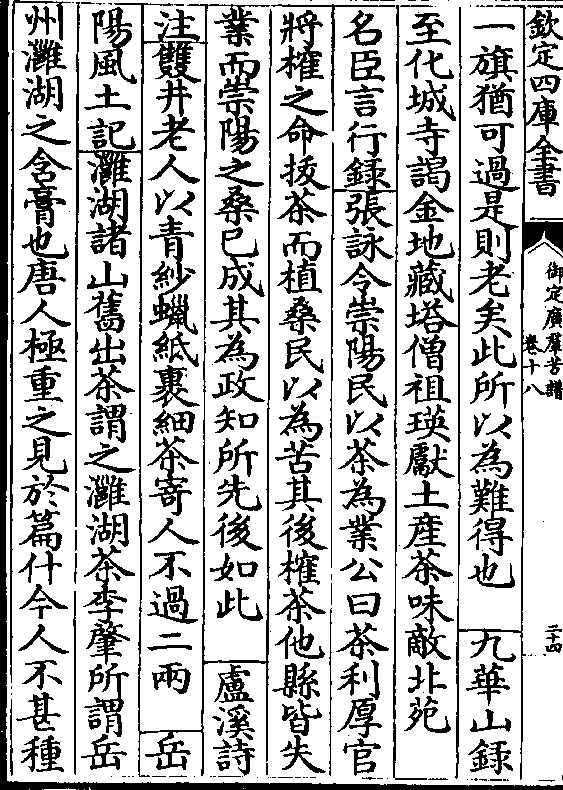 欽定四庫全書
御定廣羣芳譜
卷十八
二十四
一旗猶可過是則老矣此所以為難得也　九華山錄
至化城寺謁金地藏塔僧祖瑛獻土產茶味敵北苑
名臣言行錄張詠令崇陽民以茶為業公曰茶利厚官
將榷之命拔茶而植桑民以為苦其後榷茶他縣皆失
業而崇陽之桑已成其為政知所先後如此　盧溪詩
注雙井老人以青紗蠟紙裹細茶寄人不過二兩　岳
陽風土記灉湖諸山舊出茶謂之灉湖茶李肇所謂岳
州灉湖之含膏也唐人極重之見於篇什今人不甚種